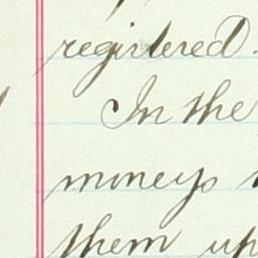 registered.
In the
moneys
them up